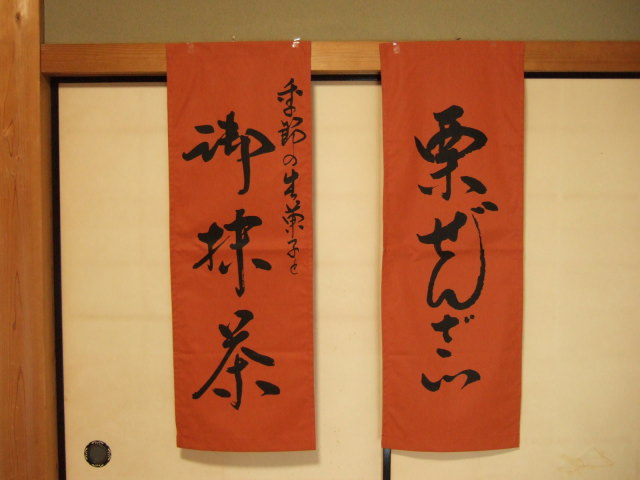 栗ぜんざい
季節の生菓子と
御抹茶